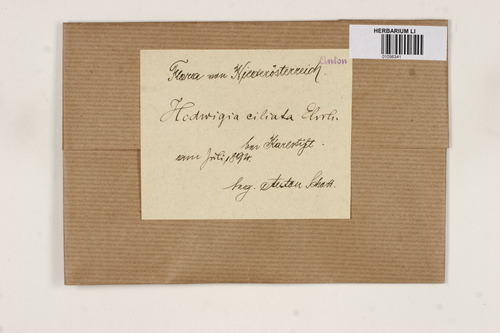 HERBARIUM LI
01096341
Anton
Flora von Niederösterreich
Hedwigia ciliata Ehrh.
bei Karlstift.
am Juli 1894.
leg. Anton Schott.